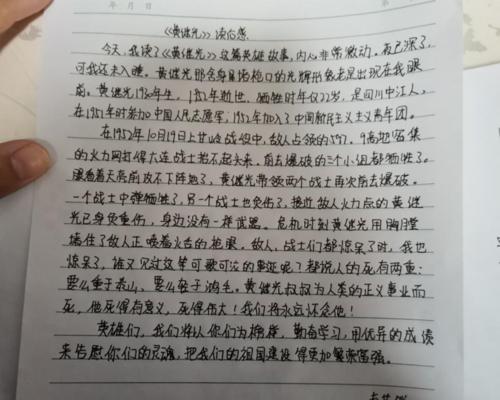 年 月 日
《黄继光》读后感
今天,我读了《黄继光》这篇英雄故事,内心非常激动。夜已深了,
可我还未入睡。黄继光那舍身堵枪口的光辉形象老是出现在我眼
前。黄继光1930年生,1952年逝世,牺牲时年仅22岁,是四川中江人。
在1951年时参加中国人民志愿军,1952年加入了中国新民主主义青年团。
在1952年10月19日上甘岭战役中,敌人占领的597.9高地密集
的火力网打得大连战士抬不起头来。前去爆破的三个小组都牺牲了。
眼看着天亮前攻不下阵地了,黄继光带领两个战士再次前去爆破。
一个战士中弹牺牲了,另一个战士也负伤了。接近敌人火力点的黄继
光已身负重伤,身边没有一样武器。危机时刻黄继光用胸膛
堵住了敌人正喷着火舌的枪眼。敌人、战士们都惊呆了时。我也
惊呆了,谁又见过这等可歌可泣的事迹呢?都说人的死有两重:
要么重于泰山,要么轻于鸿毛。黄继光叔叔为人类的正义事业而
死,他死得有意义,死得伟大!我们将永远怀念他!
英雄们,我们将以你们为榜样,勤奋学习,用优异的成绩
来告慰你们的灵魂,把我们的祖国建设得更加繁荣富强。